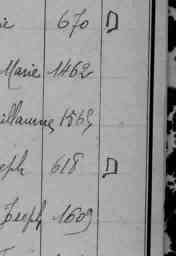 ie 670 D
Marie 1462
uillaume 1569
seph 618 D
Joseph 1609